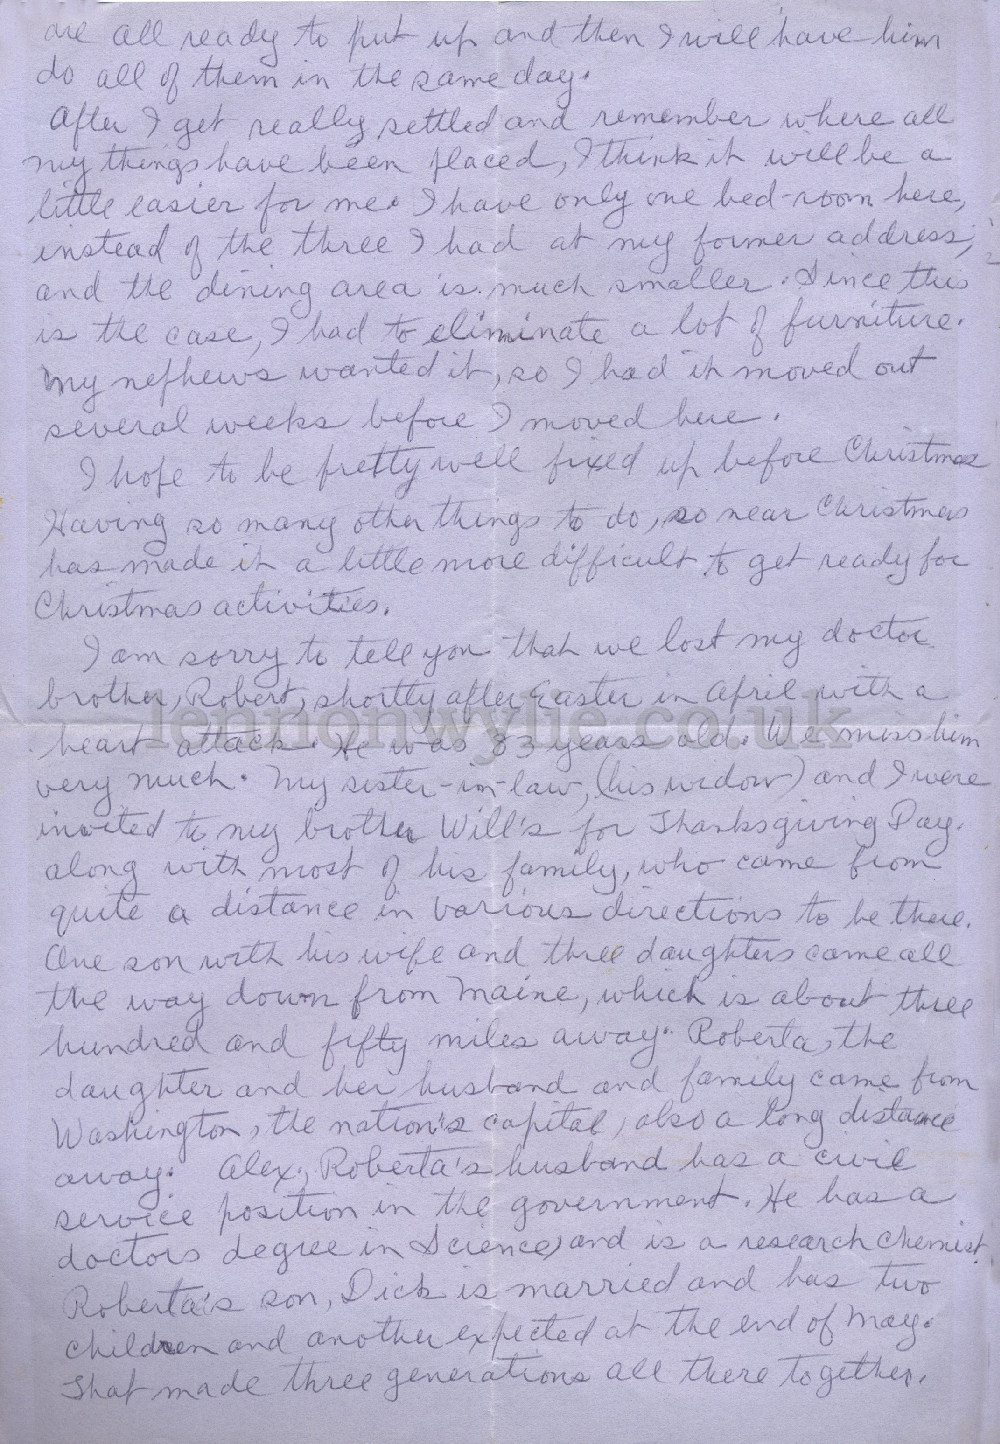 are all ready to put up and then I will have him
do all of them in the same day.
After I get really settled and remember where all
my things have been placed, I think it will be a
little easier for me. I have only one bed-room here,
instead of the three I had at my former address,
and the dining area is much smaller. Since this
is the case, I had to eliminate a lot of furniture.
My nephews wanted it, so I had it moved out
several weeks before I moved here.
I hope to be pretty well fixed up before Christmas
Having so many other things to do, so near Christmas
has made it a little more difficult to get ready for
Christmas activities.
I am sorry to tell you that we lost my doctor
brother, Robert, shortly after Easter in April with a
lennonwylie.co.uk
heart attack. He was 83 years old. We miss him
very much. My sister-in-law, (his widow) and I were
invited to my brother Will's for Thanksgiving Day.
along with most of his family, who came from
quite a distance in various directions to be there.
One son with his wife and three daughters came all
the way down from Maine, which is about three
hundred and fifty miles away. Roberta, the
daughter and her husband and family came from
Washington, the nation's capital, also a long distance
away. Alex, Roberta's husband has a civil
service position in the government. He has a
doctors degree in Science, and is a research chemist.
Roberta's son, Dick is married and has two
children and another expected at the end of May.
That made three generations all there together.